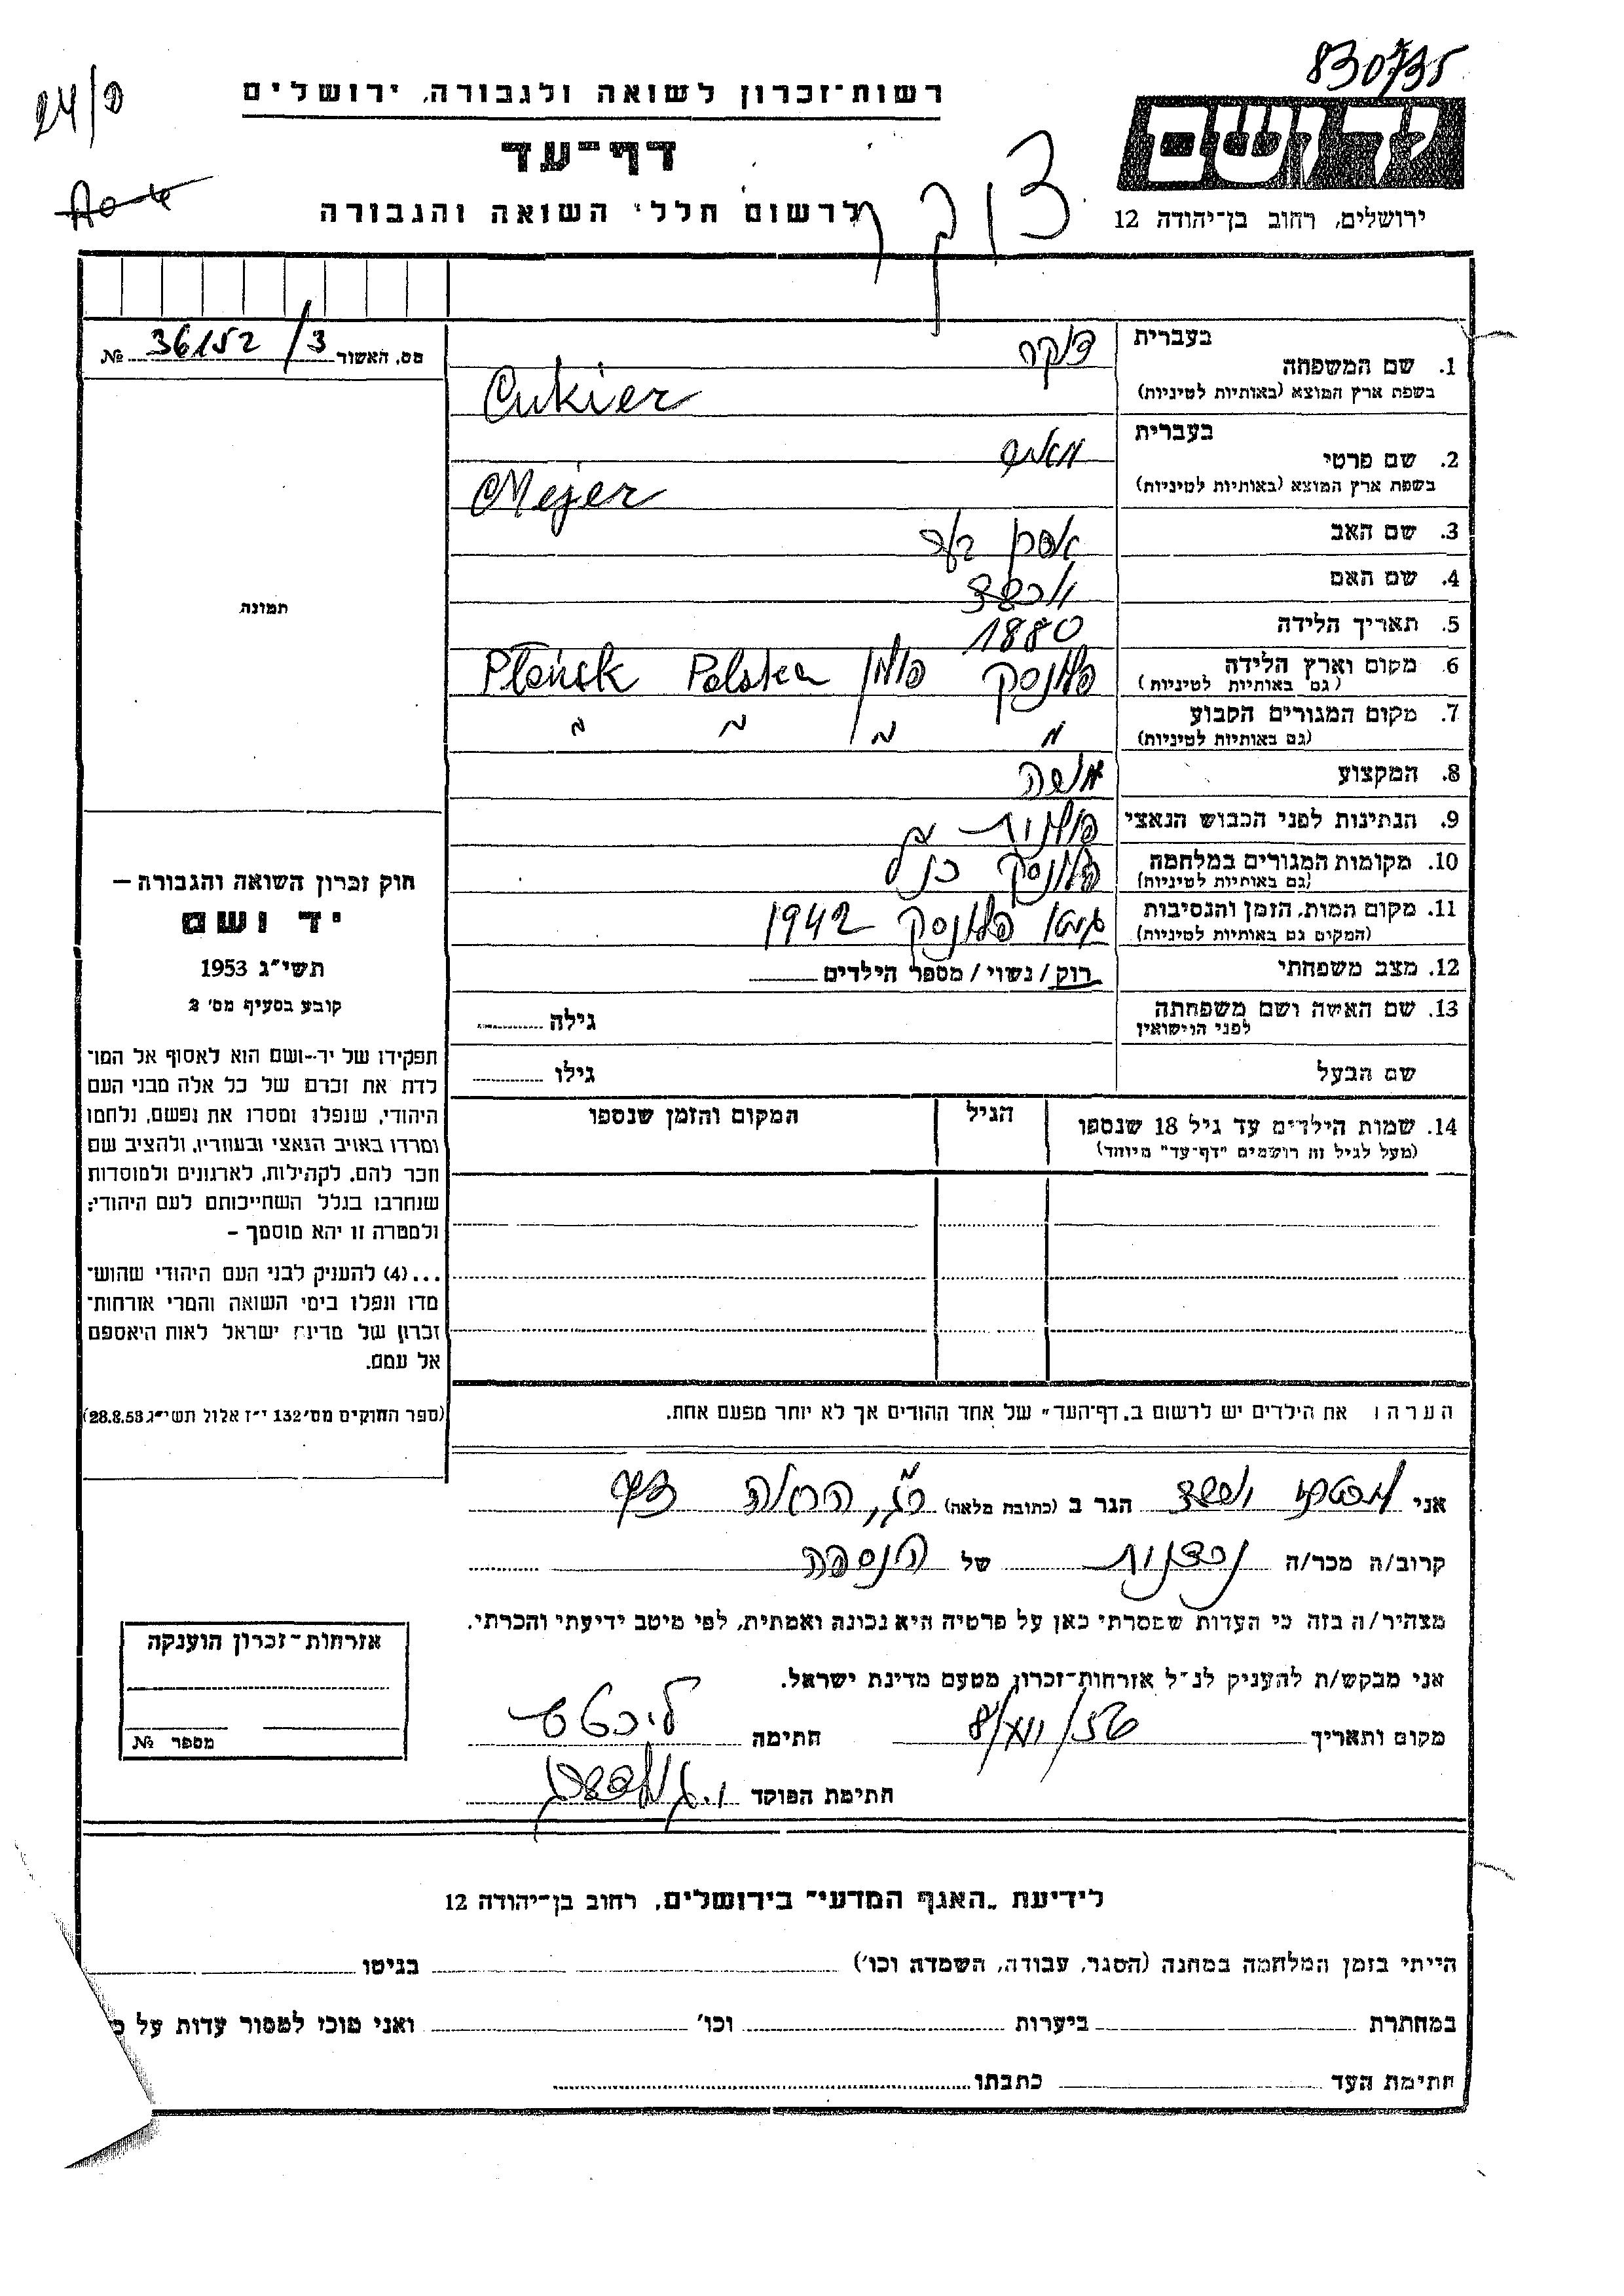 830735
24/פ
רשות־זכרון לשואה ולגבורה, ירושלים
דף־עד
לרשום חללי השואה והגבורה
יד ושם
ירושלים, רחוב בן־יהודה 12
מס. האשור 36152/3 №
תמונה
חוק זכרון השואה והגבורה —
יד ושם
תשי״ג 1953
קובע בסעיף מס׳ 2
תפקידו של יד־ושם הוא לאסוף אל המו־
לדת את זכרם של כל אלה מבני העם
היהודי, שנפלו ומסרו את נפשם, נלחמו
ומרדו באויב הנאצי ובעוזריו, ולהציב שם
וזכר להם, לקהילות, לארגונים ולמוסדות
שנחרבו בגלל השתייכותם לעם היהודי;
ולמטרה זו יהא מוסמך –
...(4) להעניק לבני העם היהודי שהוש־
מדו ונפלו בימי השואה והמרי אזרחות־
זכרון של מדינת ישראל לאות היאספם
אל עמם.
(ספר החוקים מס׳ 132 י״ז אלול תשי״ג 28.8.53)
בעברית
1. שם המשפחה צוקר
בשפת ארץ המוצא (באותיות לטיניות) Cukier
בעברית
2. שם פרטי מאיר
בשפת ארץ המוצא (באותיות לטיניות) Mejer
3. שם האב
4. שם האם
5. תאריך הלידה 1880
6. מקום וארץ הלידה פלונסק פולין Płońsk Polska
(גם באותיות לטיניות)
7. מקום המגורים הקבוע " " " "
(גם באותיות לטיניות)
8. המקצוע
9. הנתינות לפני הכבוש הנאצי פולנית
10. מקומות המגורים במלחמה פלונסק כנ״ל
(גם באותיות לטיניות)
11. מקום המות, הזמן והנסיבות גיטו פלונסק 1942
(המקום גם באותיות לטיניות)
12. מצב משפחתי רוק / נשוי / מספר הילדים
13. שם האשה ושם משפחתה גילה
לפני הנישואין
שם הבעל גילו
14. שמות הילדים עד גיל 18 שנספו הגיל המקום והזמן שנספו
(מעל לגיל זה רושמים "דף־עד" מיוחד)
הערה: את הילדים יש לרשום ב„דף־העד״ של אחד ההורים אך לא יותר מפעם אחת.
אני הגר ב (כתובת מלאה)
קרוב/ה מכר/ה של הנספה
מצהיר/ה בזה כי העדות שמסרתי כאן על פרטיה היא נכונה ואמתית, לפי מיטב ידיעתי והכרתי.
אני מבקש/ת להעניק לנ״ל אזרחות־זכרון מטעם מדינת ישראל.
מקום ותאריך 8/VIII/56 חתימה
חתימת הפוקד
אזרחות־זכרון הוענקה
מספר №
לידיעת „האגף המדעי״ בירושלים, רחוב בן־יהודה 12
הייתי בזמן המלחמה במחנה (הסגר, עבודה, השמדה וכו׳) בגיטו
במחתרת ביערות וכו׳ ואני מוכן למסור עדות על כ
חתימת העד כתבתו